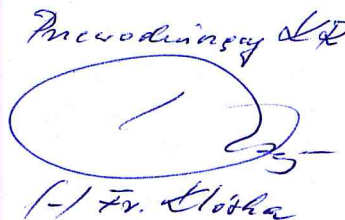 Przewodniczący KR
(-) Fr. Kłóska